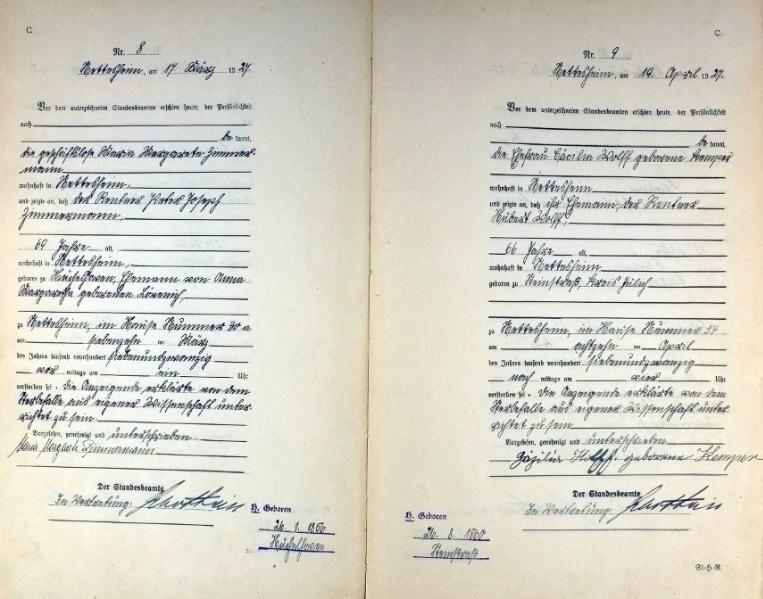 C.
Nr. 8
Nettesheim, am 17 März 1927.
Vor dem unterzeichneten Standesbeamten erschien heute, der Persönlichkeit
nach
be kannt,
die geschäftslose Maria Margarete Zimmer-
mann
wohnhaft in Nettesheim,
und zeigte an, daß der Rentner Peter Joseph
Zimmermann,
69 Jahre alt,
wohnhaft in Nettesheim
geboren zu Hüchelhoven, Ehemann von Anna
Margaretha geborenen
zu Nettesheim, im Hause Nummer 30 a
am siebenzehn ten März
des Jahres tausend neunhundert siebenundzwanzig
vor mittags um ein Uhr
verstorben sei. Die Anzeigende erklärte von dem
Sterbefalle aus eigener Wissenschaft unter-
richtet zu sein.
Vorgelesen, genehmigt und unterschrieben
Maria Margareta Zimmermann
Der Standesbeamte
In Vertretung:
H. Geboren
26. 1. 1856
Hüchelhoven
C.
Nr. 9
Nettesheim, am 19 April 1927.
Vor dem unterzeichneten Standesbeamten erschien heute, der Persönlichkeit
nach
be kannt,
die Ehefrau Cäcilia Wolff geborene Kemper
wohnhaft in Nettesheim
und zeigte an, daß ihr Ehemann, der Rentner
Hubert Wolff,
66 Jahre alt,
wohnhaft in Nettesheim
geboren zu Steinstraß, Kreis Jülich
zu Nettesheim, im Hause Nummer 54
am achtzehn ten April
des Jahres tausend neunhundert siebenundzwanzig
nach mittags um vier Uhr
verstorben sei. Die Anzeigende erklärte von dem
Sterbefalle aus eigener Wissenschaft unter-
richtet zu sein
Vorgelesen, genehmigt und unterschrieben
Zäzilia Wolff geborene Kemper
Der Standesbeamte
In Vertretung
H. Geboren
26. 8. 1860
Steinstraß
St-H-R.